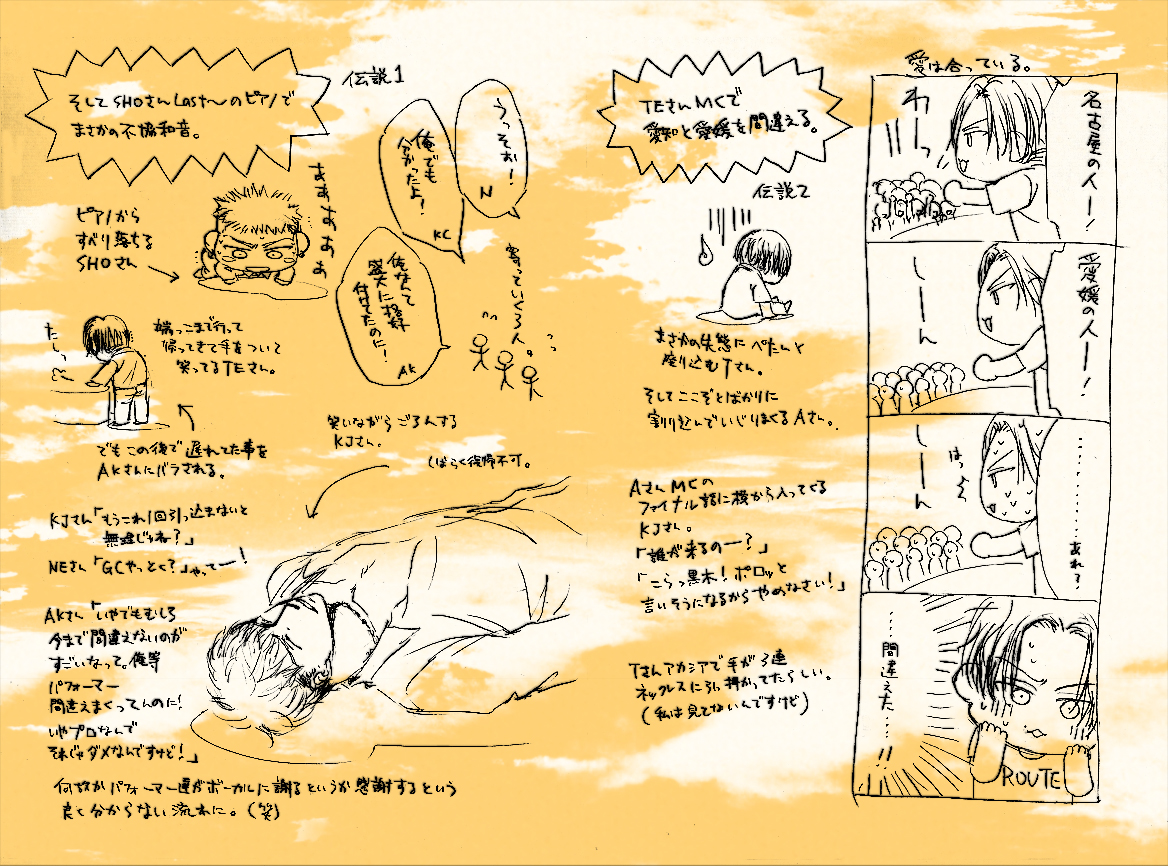 愛は合っている。
名古屋の人ー!
わーっ
愛媛の人ー!
しーーん
…………あれ?
はっ
しーーん
……間違えた……!!
ROUTE
TEさんMCで
愛知と愛媛を間違える。
伝説2
まさかの失態にぺたんと
座り込むTさん。
そしてここぞとばかりに
割り込んでいじりまくるAさん。
AさんMCの
ファイナル話に横から入ってくる
KJさん。
「誰が来るのー?」
「こらっ黒木!ポロッと
言いそうになるからやめなさい!」
Tさんアカシアで手が3連
ネックレスに引っ掛かってたらしい。
(私は見てないんですけど)
伝説1
そしてSHOさんLast〜のピアノで
まさかの不協和音。
うっそぉー!
N
俺でも
分かったよ!
KC
俺なんて
盛大に格好
付けてたのに!
AK
ああああぁ
ピアノから
すべり落ちる
SHOさん
寄っていく3人。
たしっ
端っこまで行って
帰ってきて手をついて
笑ってるTEさん。
でもこの後で遅れてた事を
AKさんにバラされる。
笑いながらごろんする
KJさん。
しばらく復帰不可。
KJさん「もうこれ1回引っ込まないと
無理じゃね?」
NEさん「GCやっとく?」やってー!
AKさん「いやでもむしろ
今まで間違えないのが
すごいなって。俺等
パフォーマー
間違えまくってんのに!
いやプロなんで
それじゃダメなんですけど!」
何故かパフォーマー達がボーカルに謝るというか感謝するという
良く分からない流れに。(笑)